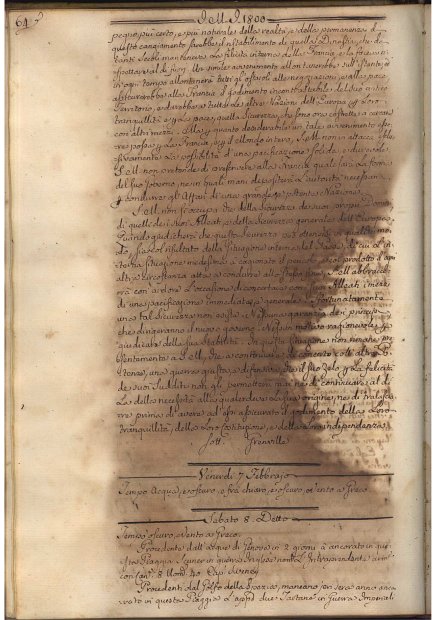 64
Dell' A. 1800
pegno più certo, e più naturale della realtà, e della permanenza di
questo cangiamento sarebbe il ristabilimento di quella Dinastia, che da
tanti Secoli mantenne la felicità interna della Francia, e la fece ri-
spettare al di fuori. Un simile avvenimento allontanerebbe sul istante, e
in ogni tempo allontanerà tutti gli ostacoli alle negoziazioni, e alla pace
assicurerebbe alla Francia il godimento incontrastabile del suo antico
Territorio, e darebbe a tutte le altre Nazioni dell' Europa
tranquillità, e la pace, quella Sicurezza, che sono ora costrette a cercare
con altri mezzi. Ma per quanto desiderabile un tale avvenimento
possa
la possibilità d' una pacificazione solida, e durevole.
S. M. non pretende di prescrivere alla Francia quale sarà la forma
del suo Governo, ne in quali mani depositerà l' autorità necessaria
per condurre gli Affari di una grande, e potente Nazione.
S. M. non si occupa che della Sicurezza de' suoi proprj Domini
di quelle de' suoi Alleati, e della Sicurezza generale dell' Europa.
Quando giudicherà che questa Sicurezza può ottenersi in qualunque mo-
do, sia dal risultato della Situazione interna del Paese, di cui l' in-
terna situazione medesima à cagionato il pericolo, sia
altra circostanza atta a condurre allo stesso fine, S. M. abbracce-
rà con ardore l' occasione di concertare con i suoi Alleati i mezzi
di una pacificazione immediata, e generale. Sfortunatamente
una tal Sicurezza non esiste. Nessuna garanzia dei principj
che dirigeranno il nuovo governo. Nessun motivo ragionevole per
giudicare della sua stabilità. In questa situazione non rimane pre-
sentemente a S. M. che a continuare di concerto colle altre Po-
tenze, una guerra giusta, e difensiva, che il suo Zelo per la felicità
de' suoi Sudditi non gli permetterà mai nè di continuare al di
là della necessità alla quale deve la sua origine, nè di tralascia-
re prima d' avere ad essi assicurato il godimento della loro
tranquillità, della loro costituzione, e della loro independenza.
Sott. Grenville
Venerdì 7 Febbrajo
Tempo Acqua, e oscuro, e frà chiaro, e oscuro, e Vento a Greco
Sabato 8 Detto
Tempo oscuro, e Vento a Greco.
Procedente dall' acque di Genova in 2 giorni à ancorato in que-
sta Piaggia Scuner in guerra Inglese nomto L' Intraprendente armto
con Can: 8 Uomi: 40 Cap:
Procedenti dal Golfo della Spezia, mancano jeri sera anno anco-
rato in questa Piaggia L' appiè due Tartane in Guerra Imperiali